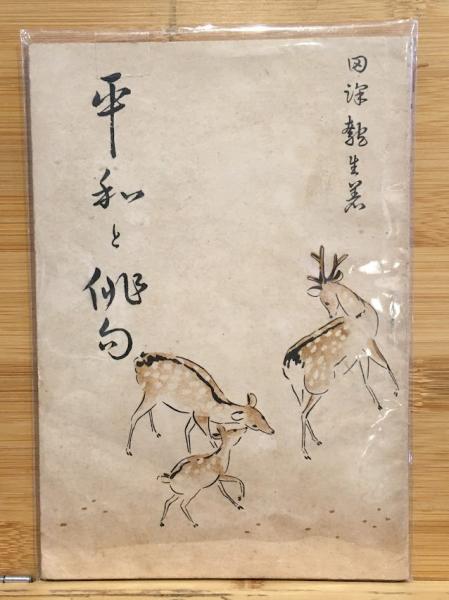 田生著
平和と俳句